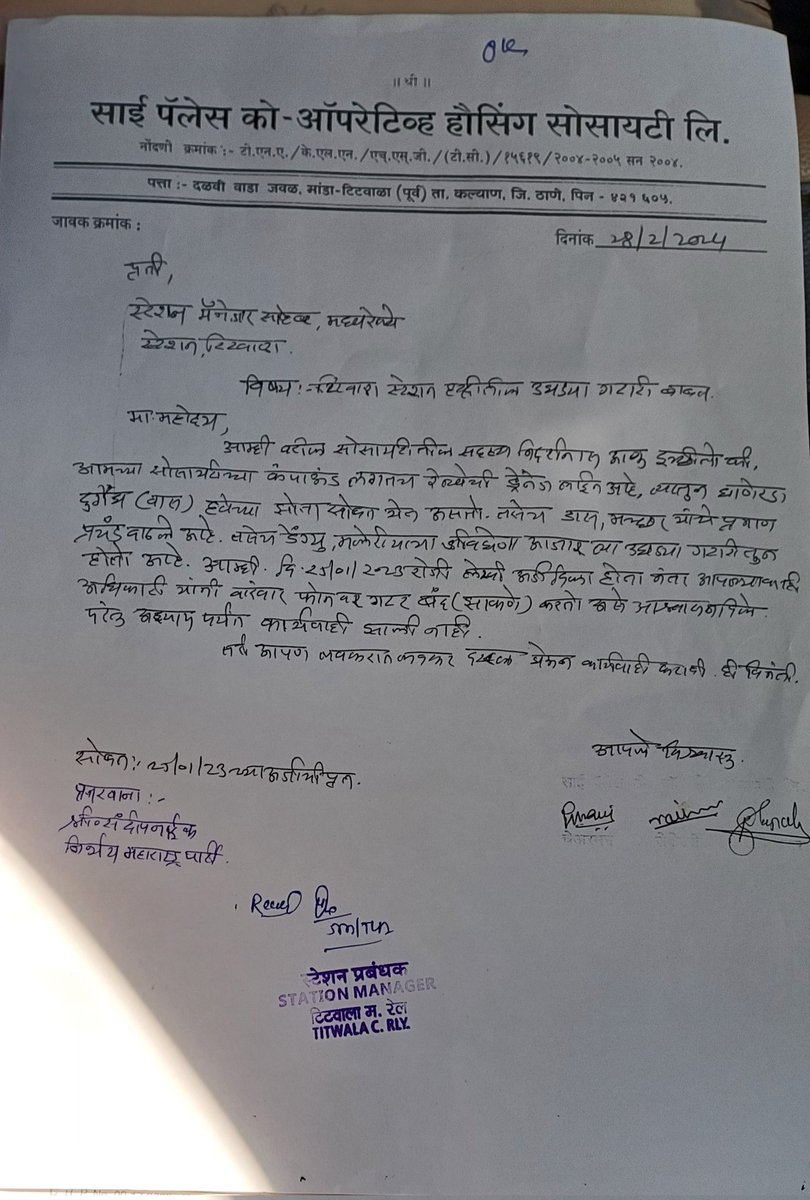 OK
॥ श्री ॥
साई पॅलेस को-ऑपरेटिव्ह हौसिंग सोसायटी लि.
नोंदणी क्रमांक :- टी.एन.ए./के.एल.एन./एच्.एस्.जी./(टी.सी.)/१५६१९/२००४-२००५ सन २००४.
पत्ता :- दळवी वाडा जवळ, मांडा-टिटवाळा (पूर्व) ता, कल्याण, जि. ठाणे, पिन - ४२१ ६०५.
जावक क्रमांक :
दिनांक 28/2/2024
प्रती,
स्टेशन मॅनेजर साहेब, मध्यरेल्वे
स्टेशन, टिटवाळा.
विषय :- टिटवाळा स्टेशन हद्दीतील उघड्या गटारी बाबत.
मा. महोदय,
आम्ही वरील सोसायटीतील सदस्य निदर्शनास आणू इच्छितो की,
आमच्या सोसायटीच्या कंपाऊंड लगतच रेल्वेची ड्रेनेज लाईन आहे, त्यातून घाणेरडा
दुर्गंध (वास) हवेच्या सोबत येत असतो. तसेच डास, मच्छर यांचे प्रमाण
प्रचंड वाढले आहे. तसेच डेंग्यु, मलेरीयाचा आजार ह्या उघड्या गटारीतून
होतो आहे. आम्ही दि. 25/01/2023 रोजी लेखी अर्ज दिला होता
अधिकारी यांनी वारंवार फोनवर गटर बंद (झाकणे) करतो असे आश्वासन दिले.
परंतु अद्याप पर्यंत कार्यवाही झाली नाही.
तरी आपण लवकरात लवकर दखल घेऊन कार्यवाही करावी. ही विनंती.
सोबत :- 25/01/23 च्या अर्जाची प्रत.
आपले विश्वासू.
श्री. संदीप नाईक
निर्भय महाराष्ट्र पार्टी.
Recd
SM/TLA
स्टेशन प्रबंधक
STATION MANAGER
टिटवाला म. रेल
TITWALA C. RLY.